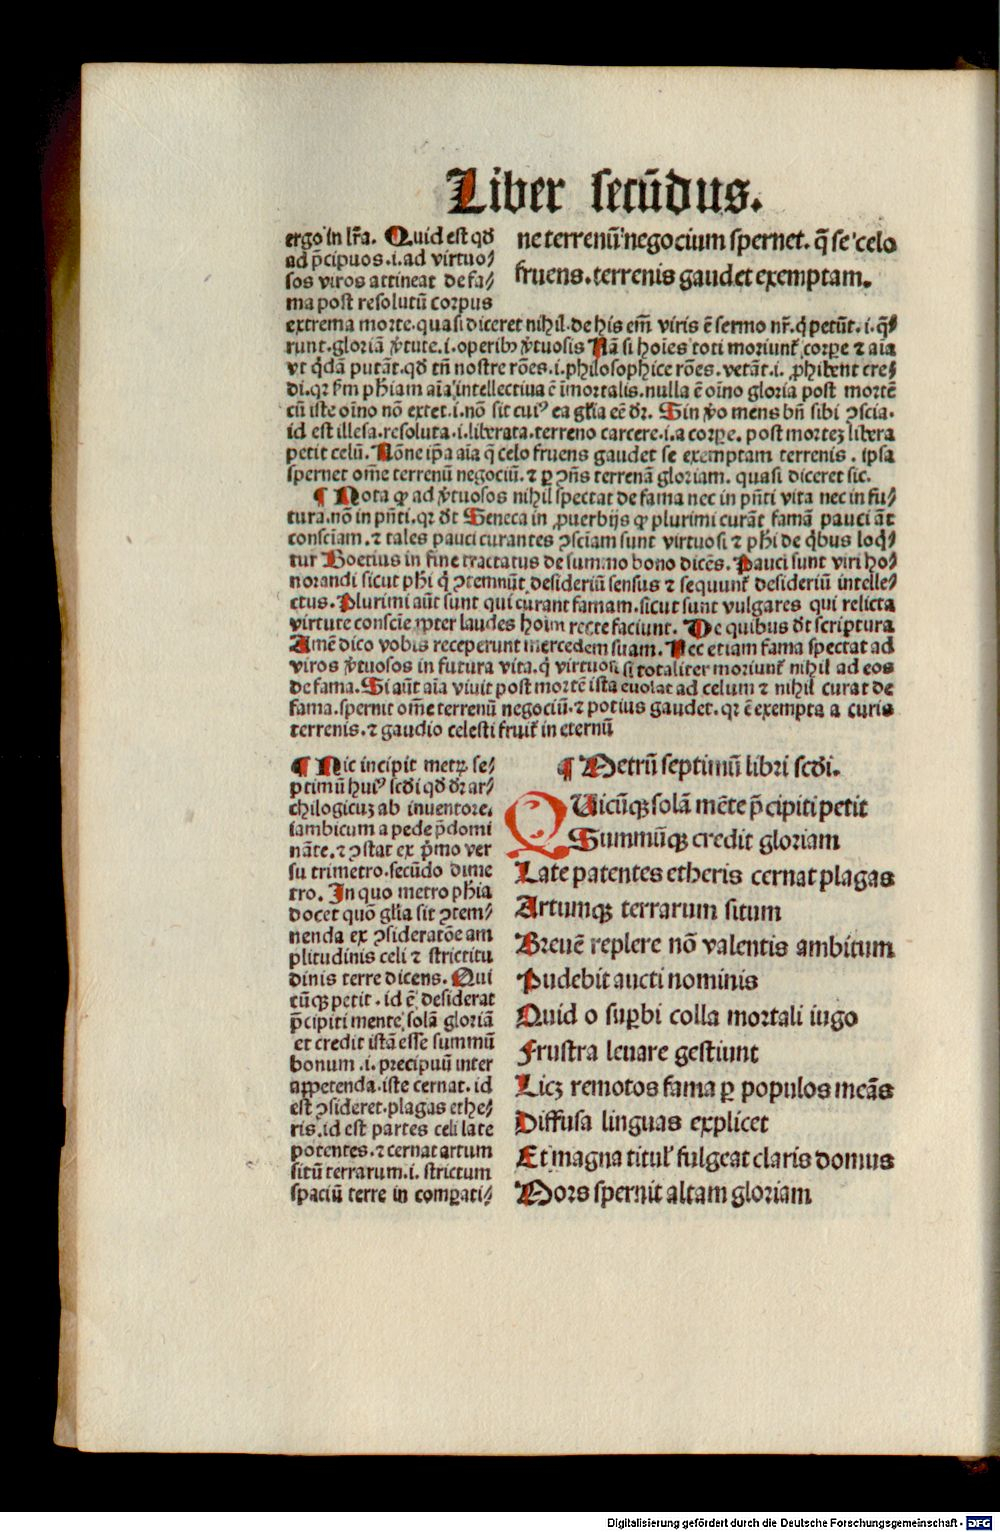 Liber secūdus.
ergo in lr̄a. Quid est qd̄
ad p̄cipuos.i.ad virtuo⸗
sos viros attineat de fa⸗
ma post resolutū corpus
ne terrenū negocium spernet. q̄ se celo
fruens.terrenis gaudet exemptam.
extrema morte.quasi diceret nihil.de his em̄ viris ē sermo nr̄.q̇ petūt.i.q̄⸗
runt.gloriā v̓tute.i.operibꝰ v̓tuosis Nā si hoīes toti moriunt᷑ corꝑe ⁊ aīa
vt q̇dā putāt.qd̄ tn̄ nostre rōes.i.philosophice rōes.vetāt.i.ꝓhibent cre⸗
di.qꝛ ẜm ph̄iam aīa intellectiua ē īmortalis.nulla ē oīno gloria post mortē
cū iste oīno nō extet.i.nō sit cuiꝰ ea gl̄ia eē dr̄. Sin v̓o mens bn̄ sibi ↄscia.
id est illesa.resoluta.i.liberata.terreno carcere.i.a corꝑe.post mortez libera
petit celū. Nōne ip̄a aīa q̄ celo fruens gaudet se exemptam terrenis. ipsa
spernet om̄e terrenū negociū.⁊ ꝑ ↄn̄s terrenā gloriam. quasi diceret sic.
¶ Nota ꝙ ad v̓tuosos nihil spectat de fama nec in pn̄ti vita nec in fu⸗
tura.nō in pn̄ti.qꝛ dt̄ Seneca in ꝓuerbijs ꝙ plurimi curāt famā pauci āt
consciam.⁊ tales pauci curantes ↄsciam sunt virtuosi ⁊ ph̄i de q̇bus loq̇⸗
tur Boetius in fine tractatus de summo bono dicēs. Pauci sunt viri ho⸗
norandi sicut ph̄i q̇ ↄtemnūt desideriū sensus ⁊ sequunt᷑ desideriū intelle⸗
ctus. Plurimi aūt sunt qui curant famam.sicut sunt vulgares qui relicta
virtute conscīe ꝓpter laudes hoīm recte faciunt. De quibus dt̄ scriptura
Amē dico vobis receperunt mercedem suam. Nec etiam fama spectat ad
viros v̓tuosos in futura vita.q̇ virtuosi si totaliter moriunt᷑ nihil ad eos
de fama. Si aūt aīa viuit post mortē ista euolat ad celum ⁊ nihil curat de
fama.spernit om̄e terrenū negociū.⁊ potius gaudet.qꝛ ē exempta a curis
terrenis.⁊ gaudio celesti fruit᷑ in eternū
¶ Hic incipit metꝝ se⸗
ptimū huiꝰ scd̄i qd̄ dr̄ ar⸗
chilogicuꝫ ab inuentore.
iambicum a pede p̄domi
nāte.⁊ ↄstat ex p̓mo ver
su trimetro.secūdo dime
tro. In quo metro ph̄ia
docet quō gl̄ia sit ↄtem⸗
nenda ex ↄsideratōe am
plitudinis celi ⁊ strictitu
dinis terre dicens. Qui
cūqꝫ petit.id ē desiderat
p̄cipiti mente solā gloriā
et credit istā esse summū
bonum.i.precipuū inter
appetenda.iste cernat.id
est ↄsideret.plagas ethe⸗
ris.id est partes celi late
potentes.⁊ cernat artum
sitū terrarum.i.strictum
spaciū terre in comꝑati⸗
¶ Metrū septimū libri scd̄i.
QUicūqꝫ solā mēte p̄cipiti petit
Summūqꝫ credit gloriam
Late patentes etheris cernat plagas
Artumqꝫ terrarum situm
Breuē replere nō valentis ambitum
Pudebit aucti nominis
Quid o suꝑbi colla mortali iugo
Frustra leuare gestiunt
Licꝫ remotos fama ꝑ populos meās
Diffusa linguas explicet
Et magna titul᷑ fulgeat claris domus
Mors spernit altam gloriam
Digitalisierung gefördert durch die Deutsche Forschungsgemeinschaft - DFG